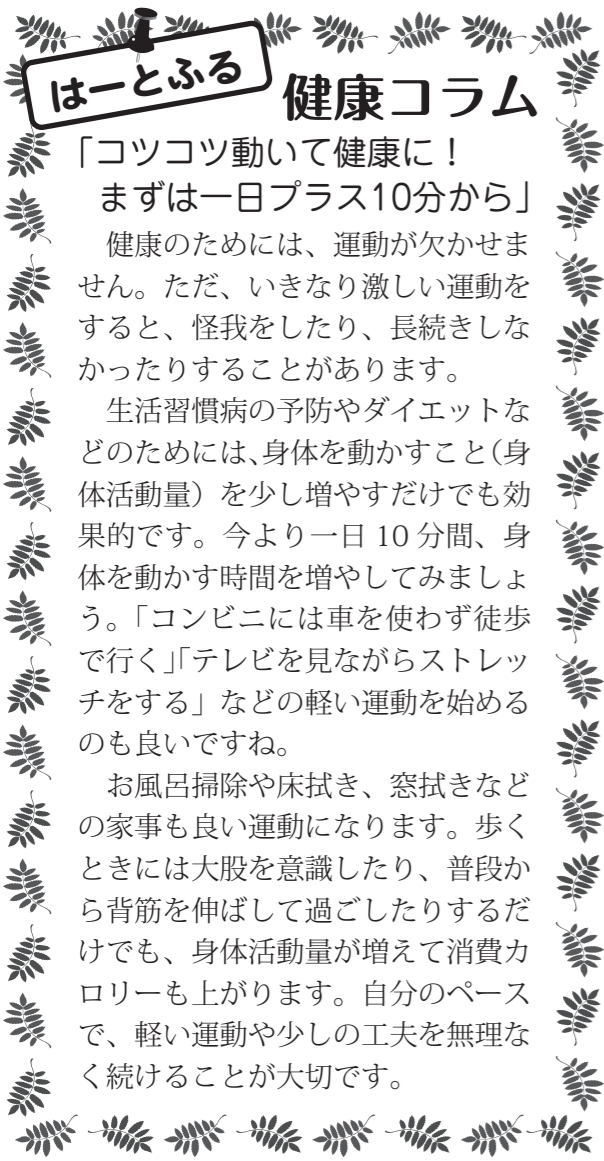 はーとふる
健康コラム
「コツコツ動いて健康に！
まずは一日プラス10分から」
健康のためには、運動が欠かせま
せん。ただ、いきなり激しい運動を
すると、怪我をしたり、長続きしな
かったりすることがあります。
生活習慣病の予防やダイエットな
どのためには、身体を動かすこと（身
体活動量）を少し増やすだけでも効
果的です。今より一日 10 分間、身
体を動かす時間を増やしてみましょ
う。「コンビニには車を使わず徒歩
で行く」「テレビを見ながらストレッ
チをする」などの軽い運動を始める
のも良いですね。
お風呂掃除や床拭き、窓拭きなど
の家事も良い運動になります。歩く
ときには大股を意識したり、普段か
ら背筋を伸ばして過ごしたりするだ
けでも、身体活動量が増えて消費カ
ロリーも上がります。自分のペース
で、軽い運動や少しの工夫を無理な
く続けることが大切です。